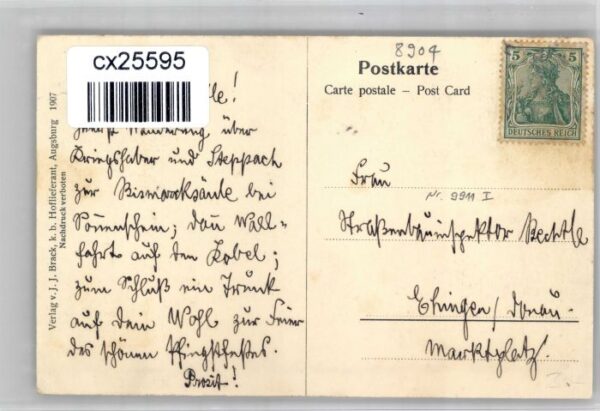 cx25595
Verlag v. J. J. Brack, k. b. Hoflieferant, Augsburg 1907
Nachdruck verboten
Wanderung über
Kriegshaber und Steppach
zur Bismarcksäule bei
Sonnenschein; dann Wall=
fahrt auf den Kobel;
zum Schluß ein Trunk
auf Dein Wohl zur Feier
des schönen Pfingstfestes.
Prosit!
8904
Postkarte
Carte postale – Post Card
5 5
DEUTSCHES REICH
Frau
Nr. 9911 I
Straßenbauinspektor Bechtle
Ehingen/Donau.
Marktplatz.